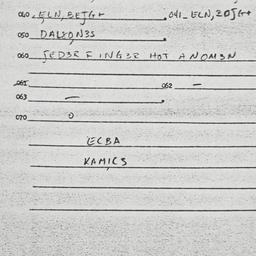 040 ELN, BEJG+ 041 ELN, 20JG+
050 DALYON3S
060 JED3R FING3R HOT ANOM3N
061 062 —
063 —
070 0
ECBA
KAMICS